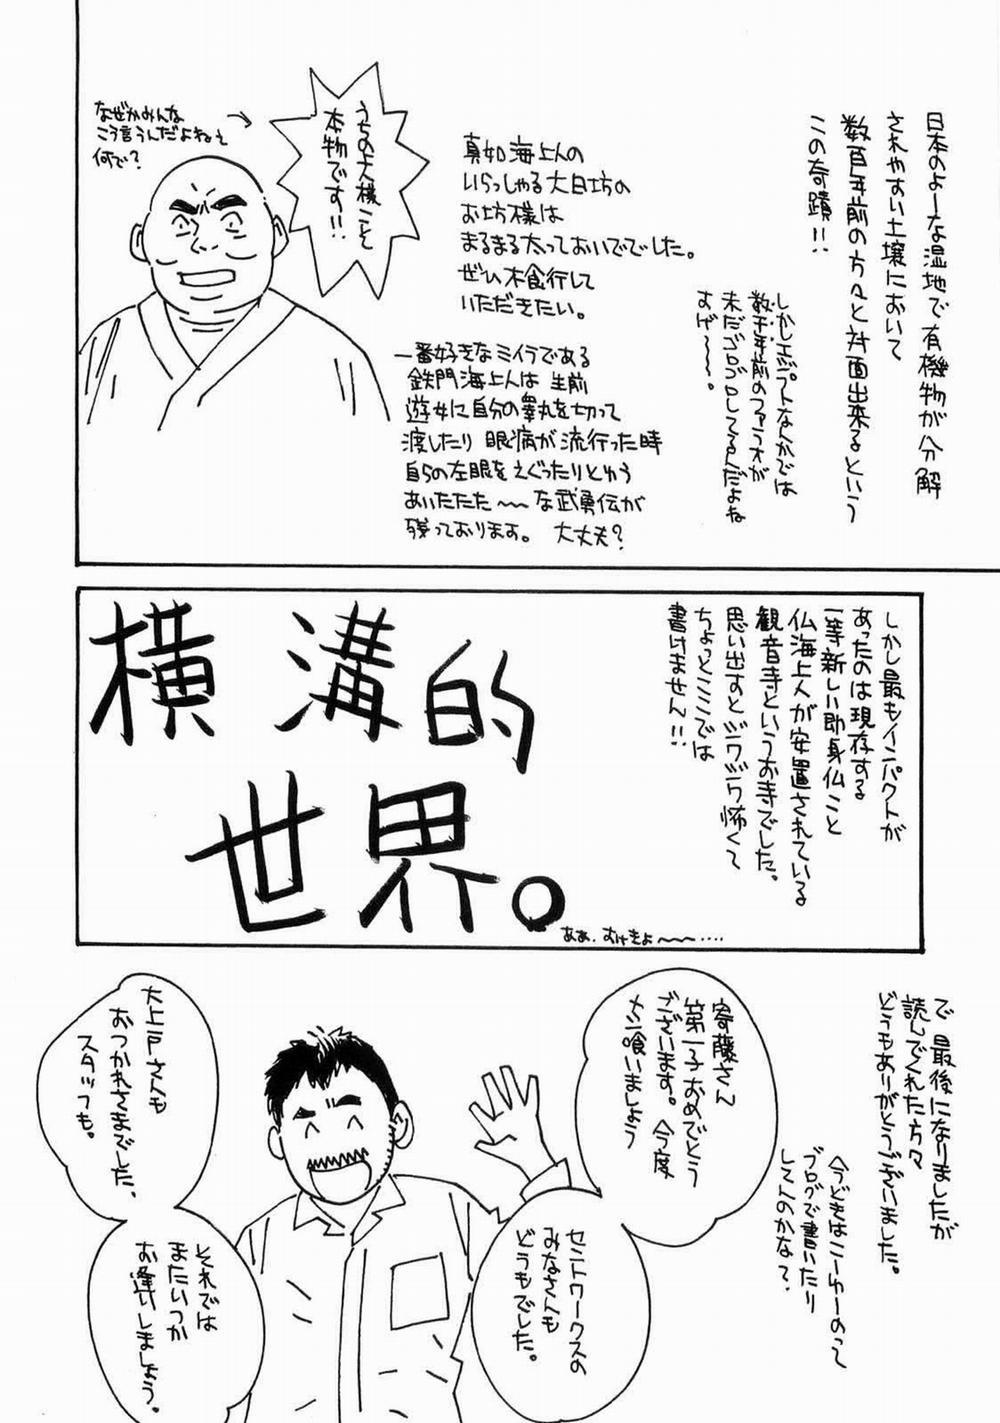 日本のよーな湿地で有機物が分解
されやすい土壌において
数百年前の方々と対面出来るという
この奇蹟!!
しかしエジプトなんかでは
数千年前のファラオが
未だゴロゴロしてるんだよね
すげ〜〜〜。
真如海上人の
いらっしゃる大日坊の
お坊様は
まるまる太っておいででした。
ぜひ木食行して
いただきたい。
うちの犬様こそ
本物です!!
なぜかみんな
こう言うんだよねぇ
何で?
一番好きなミイラである
鉄門海上人は生前
遊女に自分の睾丸を切って
渡したり眼病が流行った時
自らの左眼をえぐったりとゆう
あいたたた〜〜な武勇伝が
残っております。大丈夫?
しかし最もインパクトが
あったのは現存する
一等新しい即身仏こと
仏海上人が安置されている
観音寺というお寺でした。
思い出すとジワジワ怖くて
ちょっとここでは
書けません!!
横溝的
世界。
ああ、むけきょ〜〜‥‥
で最後になりましたが
読んでくれた方々
どうもありがとうございました。
今どきはこーゆーのって
ブログで書いたり
してんのかな?
寄藤さん
第一子おめでとう
ございます。今度
メシ喰いましょう
セントワークスの
みなさんも
どうもでした。
大上戸さんも
おつかれさまでした、
スタッフも。
それでは
またいつか
お逢いしましょう。